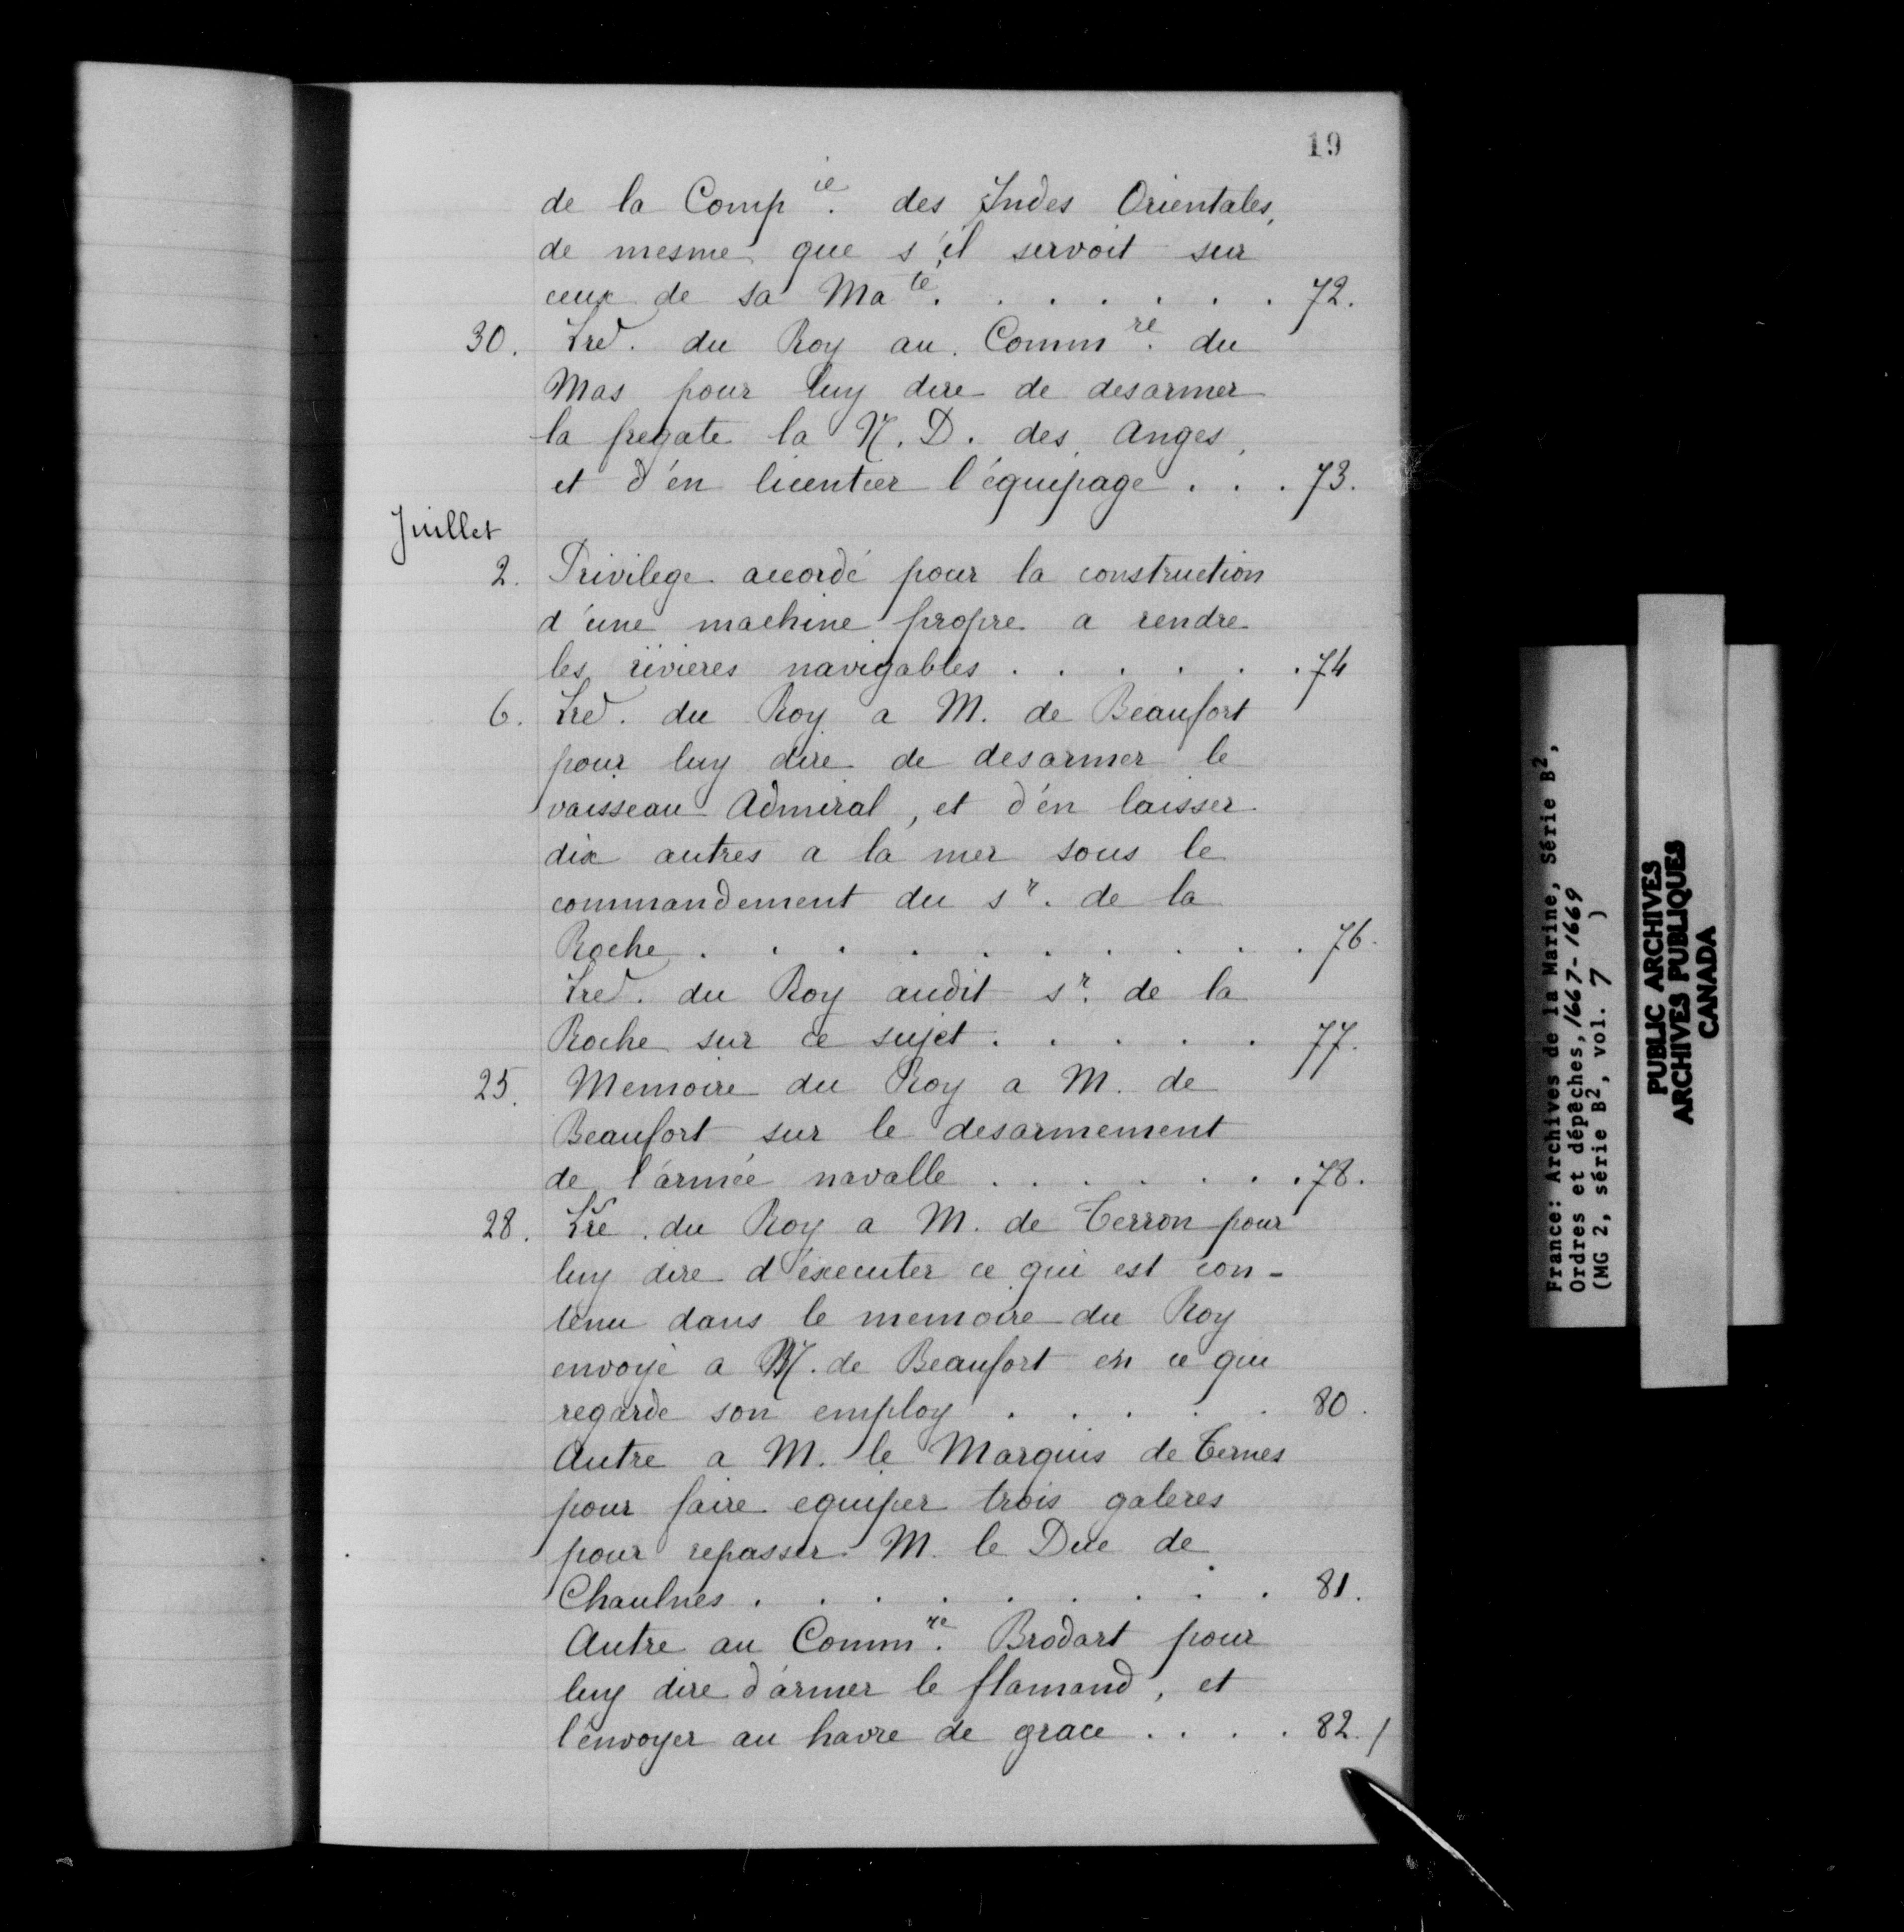 19
de la Comp^ie. des Indes Orientales,
de mesme que s'il servoit sur
ceux de sa Ma^té. . . . . . . 72.
30. Lre. du Roy au Comm^re. du
Mas pour luy dire de desarmer
la fregate la N. D. des Anges,
et d'en licentier l'équipage . . . 73.
Juillet
2. Privilege accordé pour la construction
d'une machine propre a rendre
les rivieres navigables . . . . . . 74
6. Lre. du Roy a M. de Beaufort
pour luy dire de desarmer le
vaisseau Admiral, et d'en laisser
dix autres a la mer sous le
commandement du s^r. de la
Roche . . . . . . . . . 76.
Lre. du Roy audit s^r. de la
Roche sur ce sujet . . . . . 77.
25. Memoire du Roy a M. de
Beaufort sur le desarmement
de l'armée navalle . . . . . . 78.
28. Lre. du Roy a M. de Terron pour
luy dire d'éxecuter ce qui est con-
tenu dans le memoire du Roy
envoyé a M. de Beaufort en ce qui
regarde son employ . . . . . 80.
Autre a M. le Marquis de Ternes
pour faire equiper trois galeres
pour repasser M. le Duc de
Chaulnes . . . . . . . . 81.
Autre au Comm^re. Brodart pour
luy dire d'armer le flamand, et
l'envoyer au havre de grace . . . . 82./
France: Archives de la Marine, Série B²,
Ordres et dépêches, 1667-1669
(MG 2, série B², vol. 7 )
PUBLIC ARCHIVES
ARCHIVES PUBLIQUES
CANADA